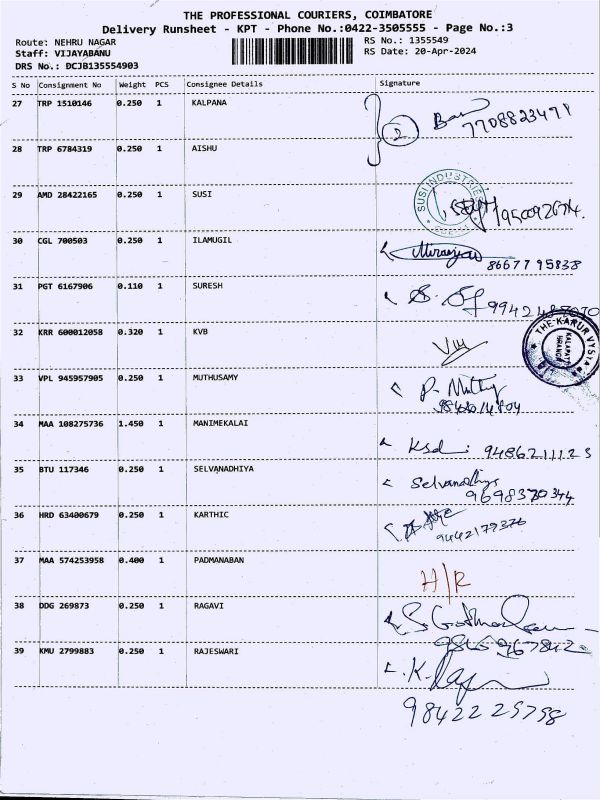 THE PROFESSIONAL COURIERS, COIMBATORE
Delivery Runsheet - KPT - Phone No.:0422-3505555 - Page No.:3
Route: NEHRU NAGAR RS No.: 1355549
Staff: VIJAYABANU RS Date: 20-Apr-2024
DRS No.: DCJB135554903
S No Consignment No Weight PCS Consignee Details Signature
27 TRP 1510146 0.250 1 KALPANA
2 7708823471
28 TRP 6784319 0.250 1 AISHU
29 AMD 28422165 0.250 1 SUSI
SUSI INDUSTRIE
30 CGL 700503 0.250 1 ILAMUGIL
8667795838
31 PGT 6167906 0.110 1 SURESH
32 KRR 600012058 0.320 1 KVB
THE KARUR VYSYA
33 VPL 945957905 0.250 1 MUTHUSAMY
P. Muthu
34 MAA 108275736 1.450 1 MANIMEKALAI
9486211123
35 BTU 117346 0.250 1 SELVANADHIYA
Selvanadhiya
9698370344
36 HRD 63400679 0.250 1 KARTHIC
9442179376
37 MAA 574253958 0.400 1 PADMANABAN
H/R
38 DDG 269873 0.250 1 RAGAVI
39 KMU 2799883 0.250 1 RAJESWARI
K.
9842225798